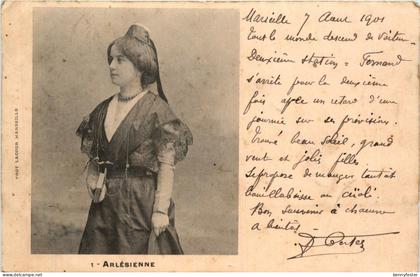 Marseille 7 Aout 1901
Tout le monde descend de voiture
Deuxième station = Fernand
s'arrête pour la deuxième
fois après un retard d'une
journée sur ses prévisions.
Trouvé beau soleil, grand
vent et jolis filles
se propose de manger tantot
bouillabaisse ou aïoli
Bon souvenir à chacun
a bientôt
PHOT LACOUR MARSEILLE
1 - ARLÉSIENNE
bennyfoster